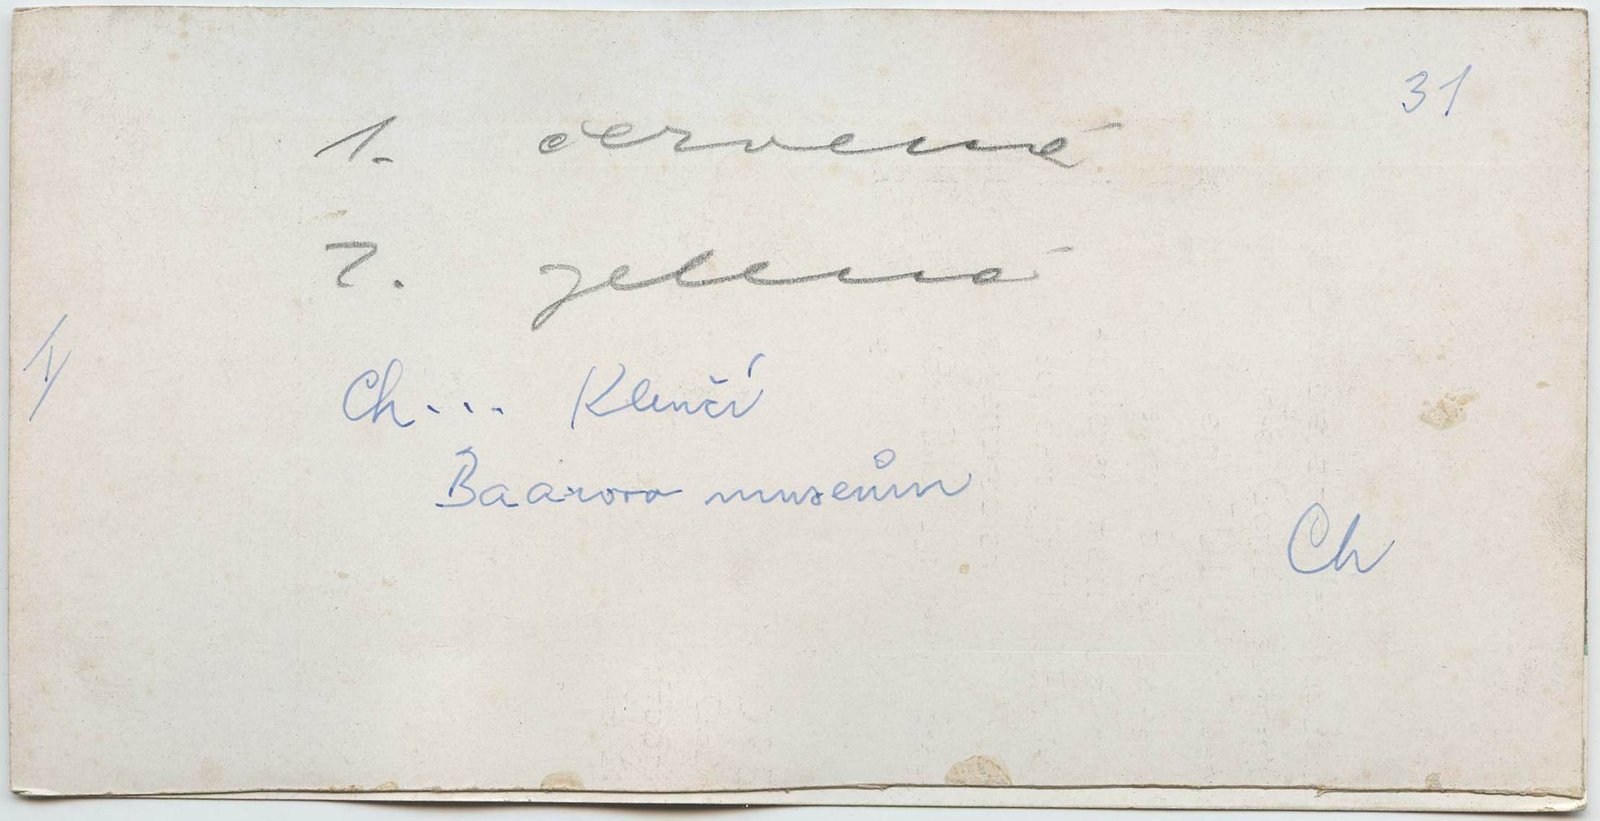 31
1. červená
2. zelená
Ch... Klenčí
Baarovo museum
Ch